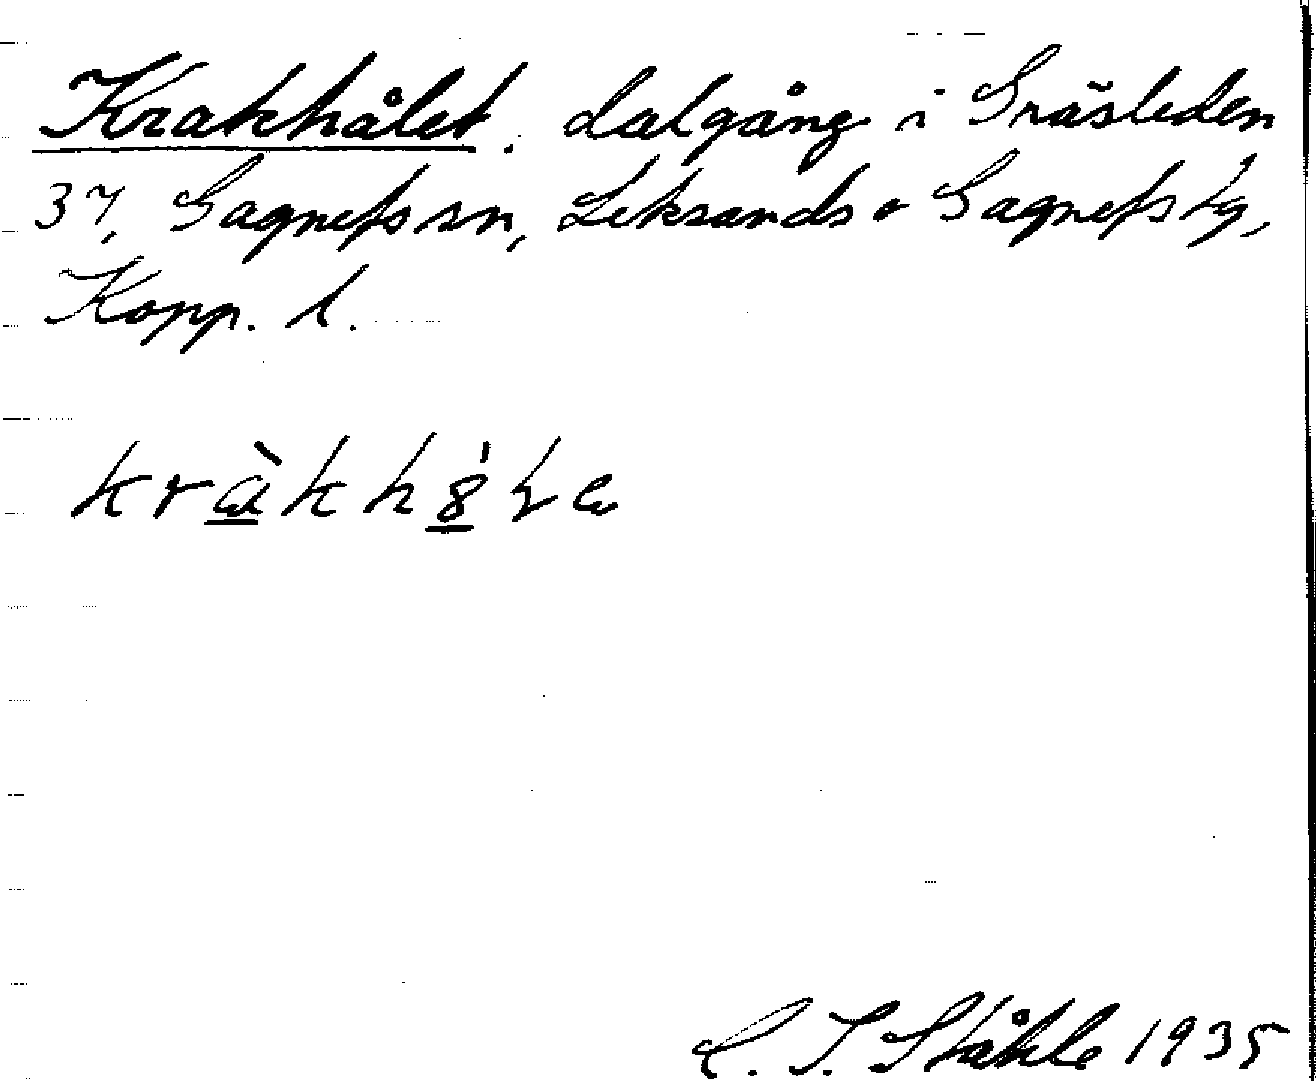 Krakhålet. dalgång i Gräsleden
37, Gagnefs sn, Leksands o Gagnefs tg,
Kopp. l.
C. I. Ståhle 1935